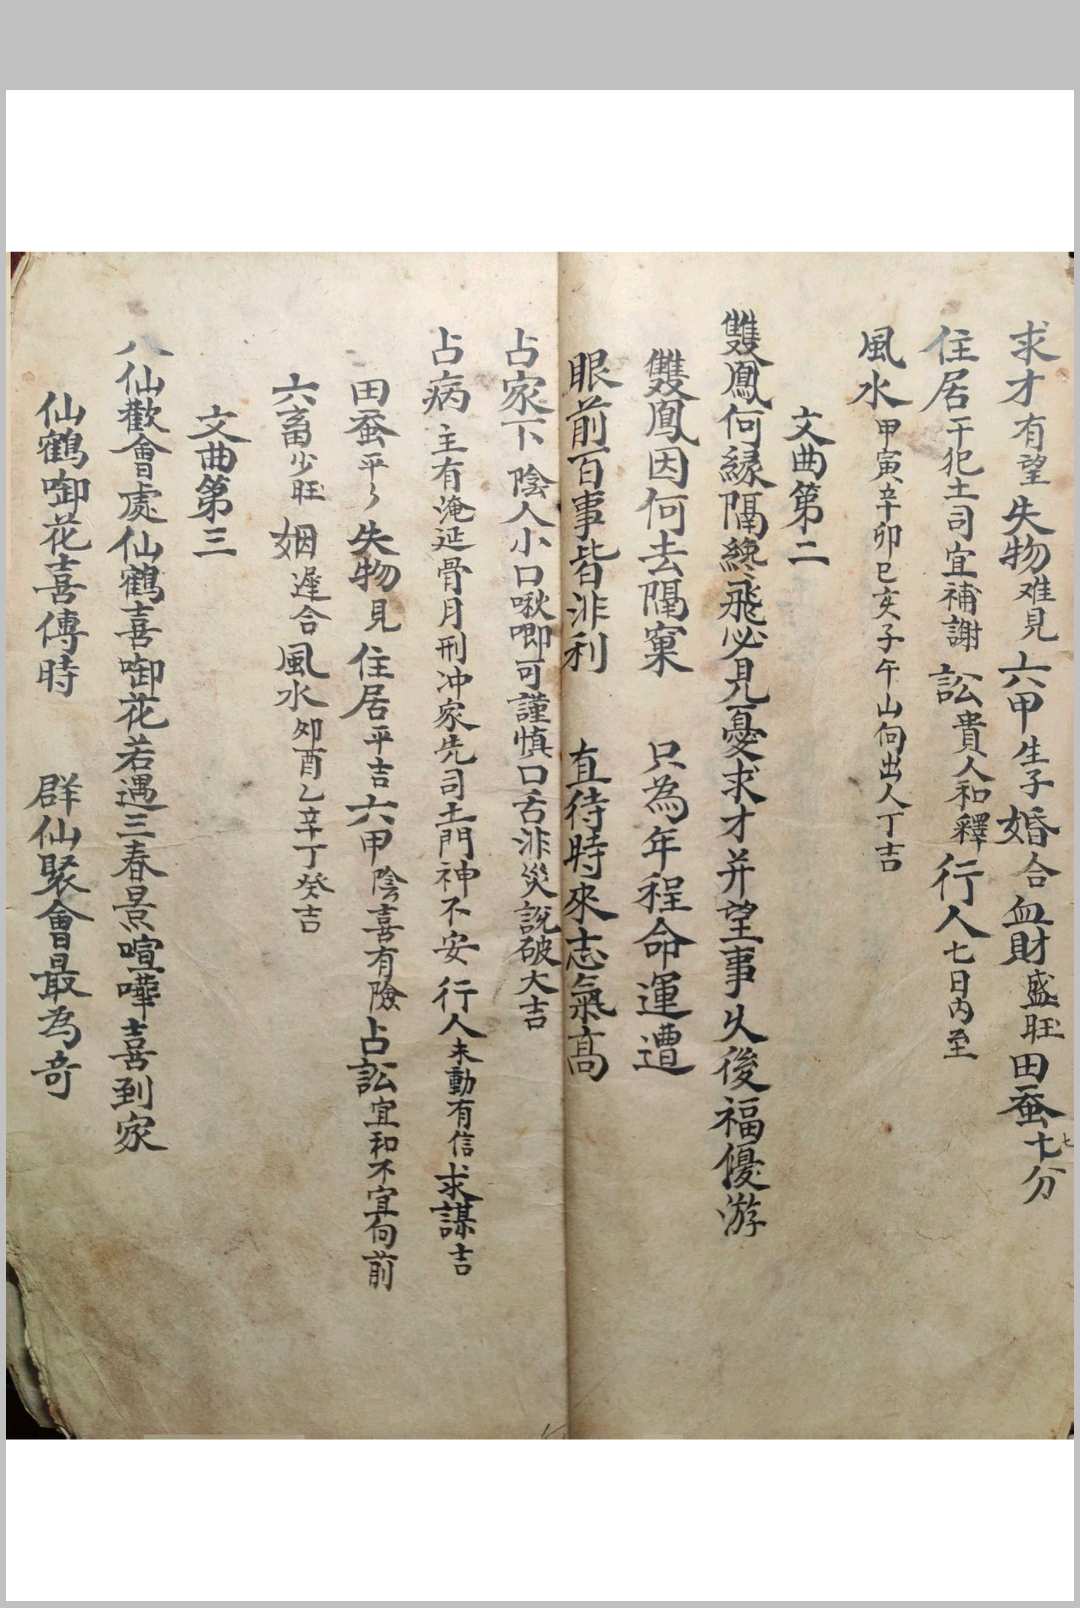 求才有望失物难見六甲生子婚合血財盛旺田蚕十七分
住居干犯土司宜補謝訟貴人和釋行人七日内至
風水甲寅辛卯巳亥子午山向出人丁吉
文曲第二
雙鳳何緣隔纔飛必見憂求才并望事久後福優游
雙鳳因何去隔窠 只為年程命運遭
眼前百事皆非利 直待時來志氣高
占家下陰人小口啾唧可謹慎口舌非災說破大吉
占病主有淹延骨月刑冲家先司土門神不安行人未動有信求謀吉
田蚕平々失物見住居平吉六甲陰喜有險占訟宜和不宜向前
六畜少旺姻遲合風水夘酉乙辛丁癸吉
文曲第三
八仙歡會處仙鶴喜啣花若遇三春景喧嘩喜到家
仙鶴啣花喜傳時 群仙聚會最為奇